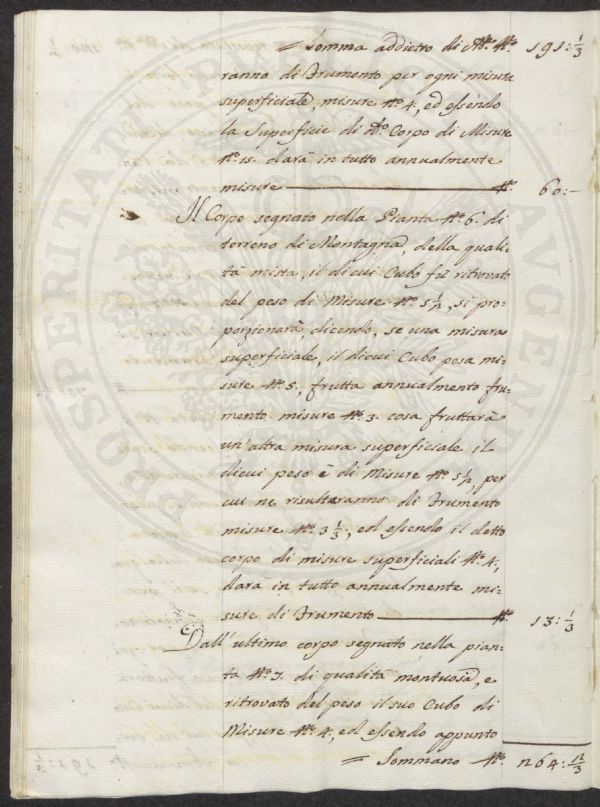 = Somma addietro di N.º N.º 191: 1/3
ranno di Frumento per ogni misura
superficiale, misure N.º 4, ed essendo
la Superficie di d.º Corpo di Misure
N.º 15. darà in tutto annualmente
misure N.º 60:—
Il Corpo segnato nella Pianta N.º 6. di
terreno di Montagna, della quali=
tà mista, il di cui Cubo fù ritrovato
del peso di Misure N.º 5 1/2, si pro=
porzionarà, dicendo, se una misura
superficiale, il di cui Cubo pesa mi=
sure N.º 5, frutta annualmente fru=
mento misure N.º 3. cosa fruttarà
un'altra misura superficiale il
di cui peso è di Misure N.º 5 1/2, per
cui ne risulteranno di Frumento
misure N.º 3 1/3; ed essendo il detto
corpo di misure superficiali N.º 4,
darà in tutto annualmente mi=
sure di Frumento N.º 13: 1/3
Dall'ultimo corpo segnato nella pian=
ta N.º 7. di qualità montuosa, e
ritrovato del peso il suo Cubo di
Misure N.º 4, ed essendo appunto
= Sommano N.º 264: 2/3
PROSPERITATI PUBLICAE AUGENDAE